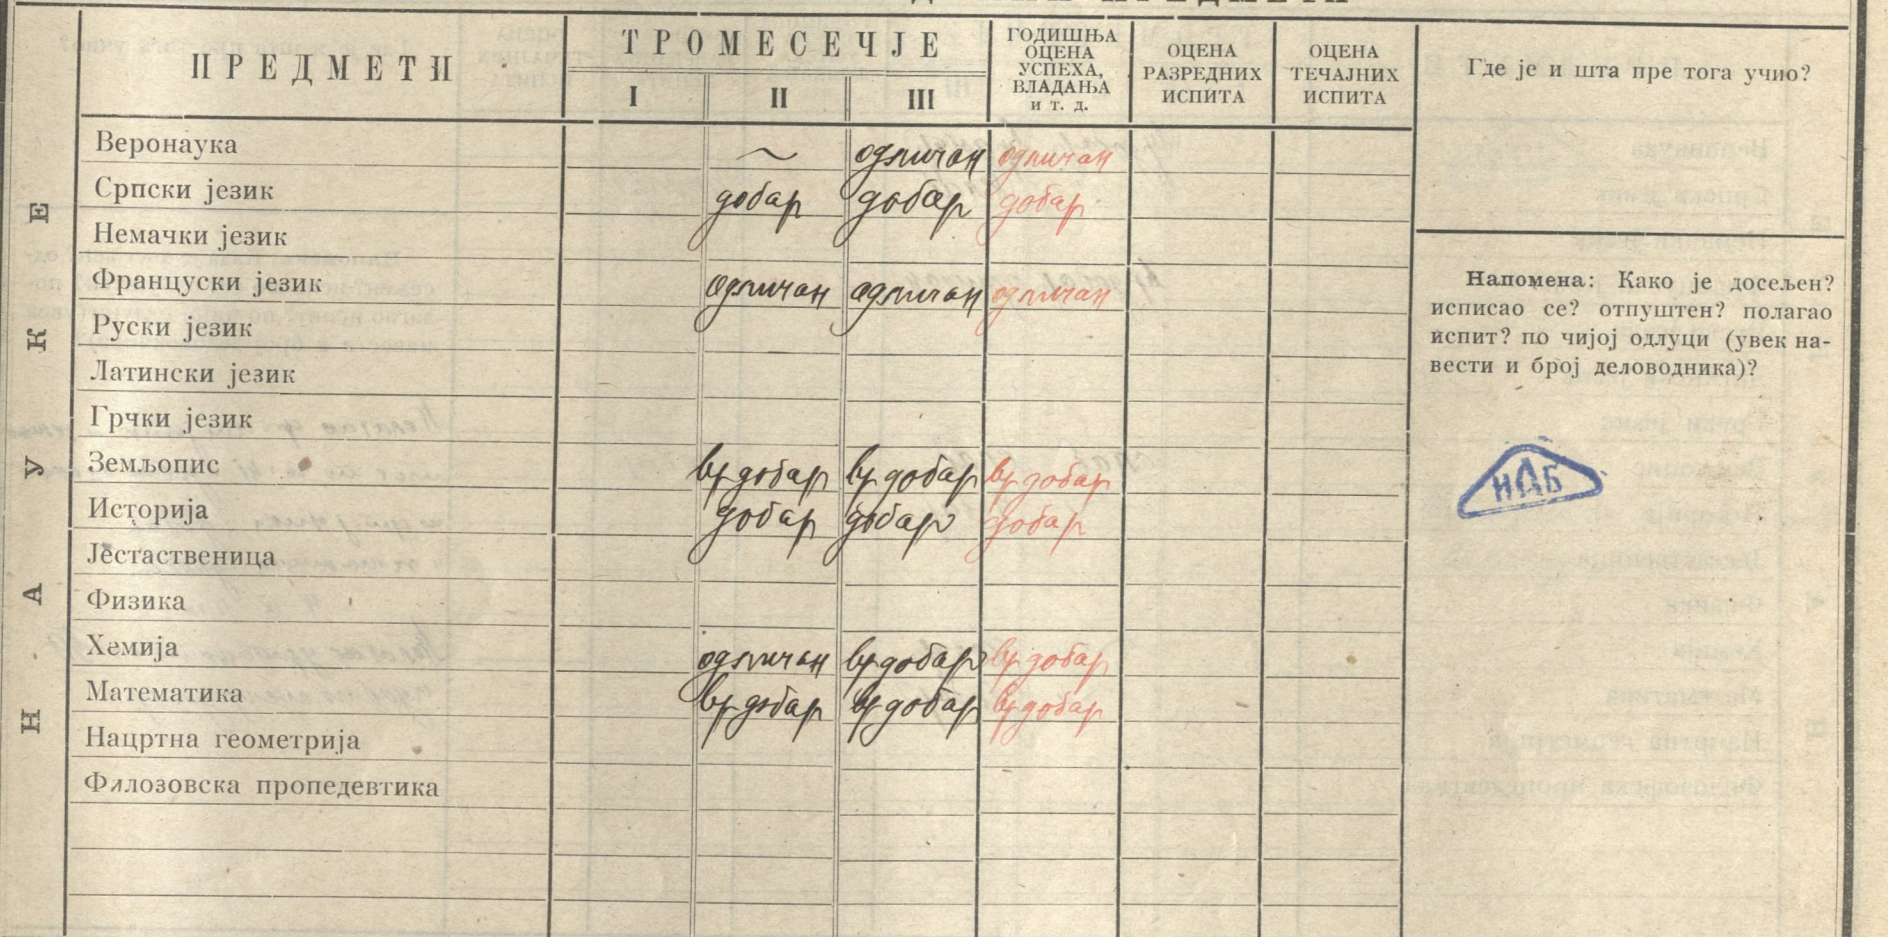 ПРЕДМЕТИ
ТРОМЕСЕЧЈЕ
I II III
ГОДИШЊА
ОЦЕНА
УСПЕХА,
ВЛАДАЊА
и т. д.
ОЦЕНА
РАЗРЕДНИХ
ИСПИТА
ОЦЕНА
ТЕЧАЈНИХ
ИСПИТА
Где је и шта пре тога учио?
НАУКЕ
Веронаука ~ одличан одличан
Српски језик добар добар добар
Немачки језик
Француски језик одличан одличан одличан
Руски језик
Латински језик
Грчки језик
Земљопис вр добар вр добар вр добар
Историја добар добар добар
Јестаственица
Физика
Хемија одличан вр добар вр добар
Математика вр добар вр добар вр добар
Нацртна геометрија
Филозовска пропедевтика
Напомена: Како је досељен?
исписао се? отпуштен? полагао
испит? по чијој одлуци (увек на-
вести и број деловодника)?
ИАБ